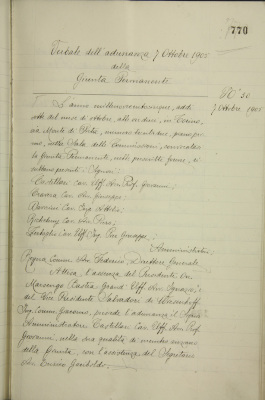 770
Verbale dell'adunanza 7 Ottobre 1905
della
Giunta Permanente
N° 50
7 Ottobre 1905
L'anno millenovecentocinque, addì
sette del mese di ottobre, alle ore dieci, in Torino,
via Monte di Pietà, numero trentadue, piano pri-
mo, nella Sala delle Commissioni, convocatasi
la Giunta Permanente, nelle prescritte forme, ri-
sultano presenti i Signori:
Castellari Cav. Uff. Avv. Prof. Giovanni;
Cav. Avv. Giuseppe;
Cav. Ing. Attilio;
Cav. Avv. Pietro;
Cav. Uff. Ing. Giuseppe;
Amministratori
Comm. Avv. Federico, Direttore Generale
Attesa l'assenza del Presidente On.
Marsengo Bastia Grand' Uff. Avv. Ignazio, e
del Vice Presidente Salvadori di Wiesenhoff
Ing. Comm. Giacomo, presiede l'adunanza il Signor
Amministratore Castellari Cav. Uff. Avv. Prof.
Giovanni, nella sua qualità di membro anziano
della Giunta, con l'assistenza del Segretario
Avv. Enrico